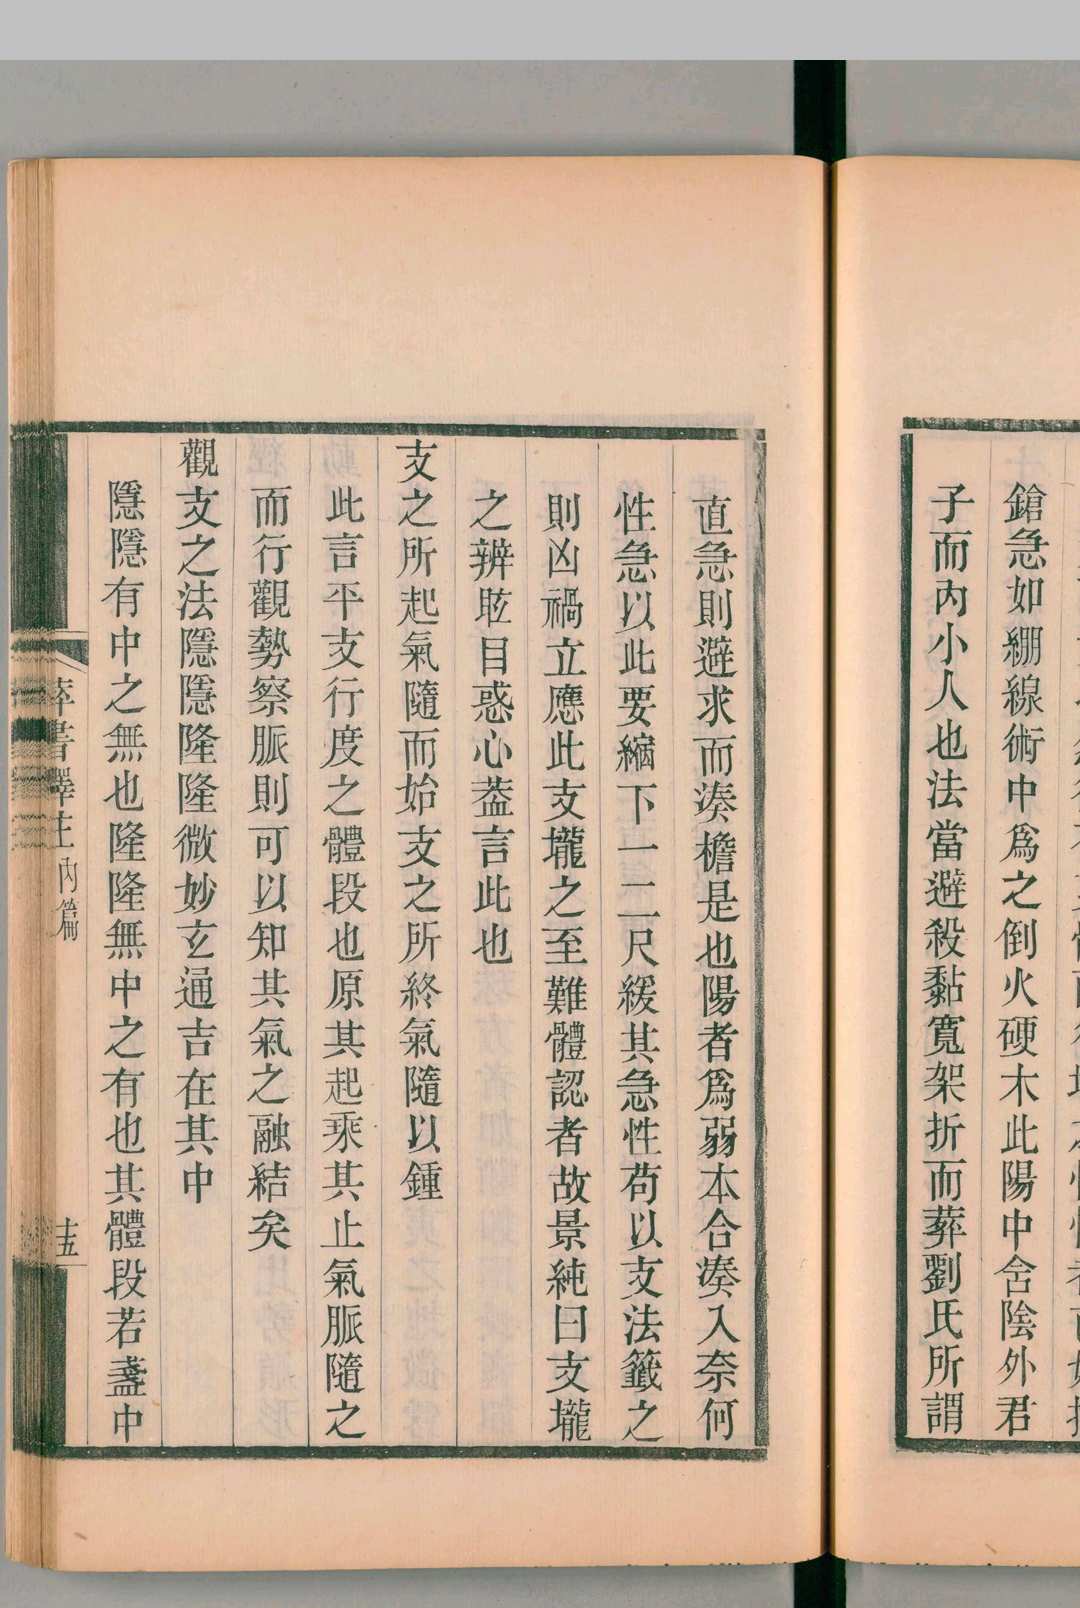 鎗急如綳線術中爲之倒火硬木此陽中含陰外君
子而內小人也法當避殺黏寬架折而葬劉氏所謂
直急則避求而湊檐是也陽者爲弱本合湊入奈何
性急以此要縮下一二尺緩其急性苟以支法籤之
則凶禍立應此支壠之至難體認者故景純曰支壠
之辨眩目惑心葢言此也
支之所起氣隨而始支之所終氣隨以鍾
此言平支行度之體段也原其起乘其止氣脈隨之
而行觀勢察脈則可以知其氣之融結矣
觀支之法隱隱隆隆微妙玄通吉在其中
隱隱有中之無也隆隆無中之有也其體段若盞中
內篇
十五